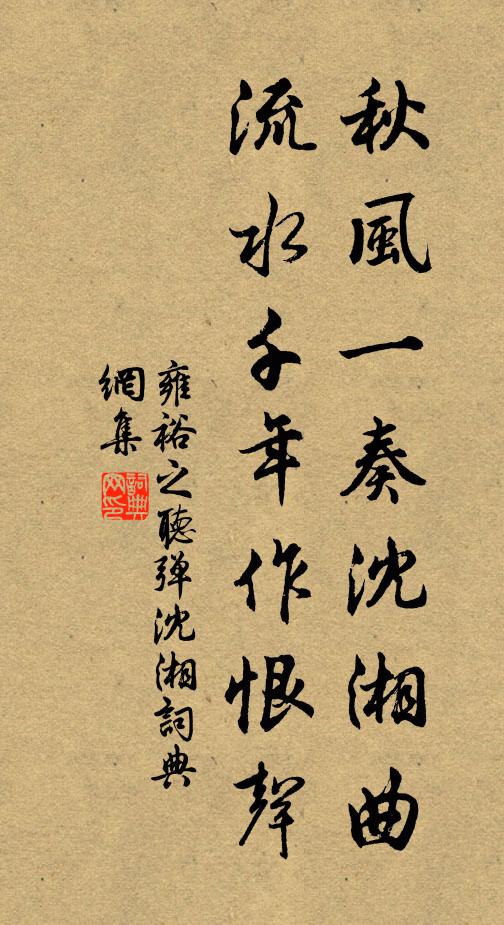 秋風一奏沈湘曲
流水千年作恨聲
雍裕之聽弹沈湘詞典
網集
詞典網印